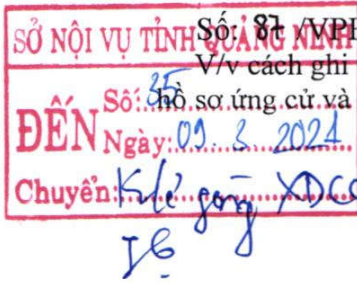 SỞ NỘI VỤ TỈNH QUẢNG NINH
Số: 87 /VPH
V/v cách ghi
hồ sơ ứng cử và
ĐẾN
Số: 35
Ngày: 09. 3. 2021
Chuyển:
XDCQ